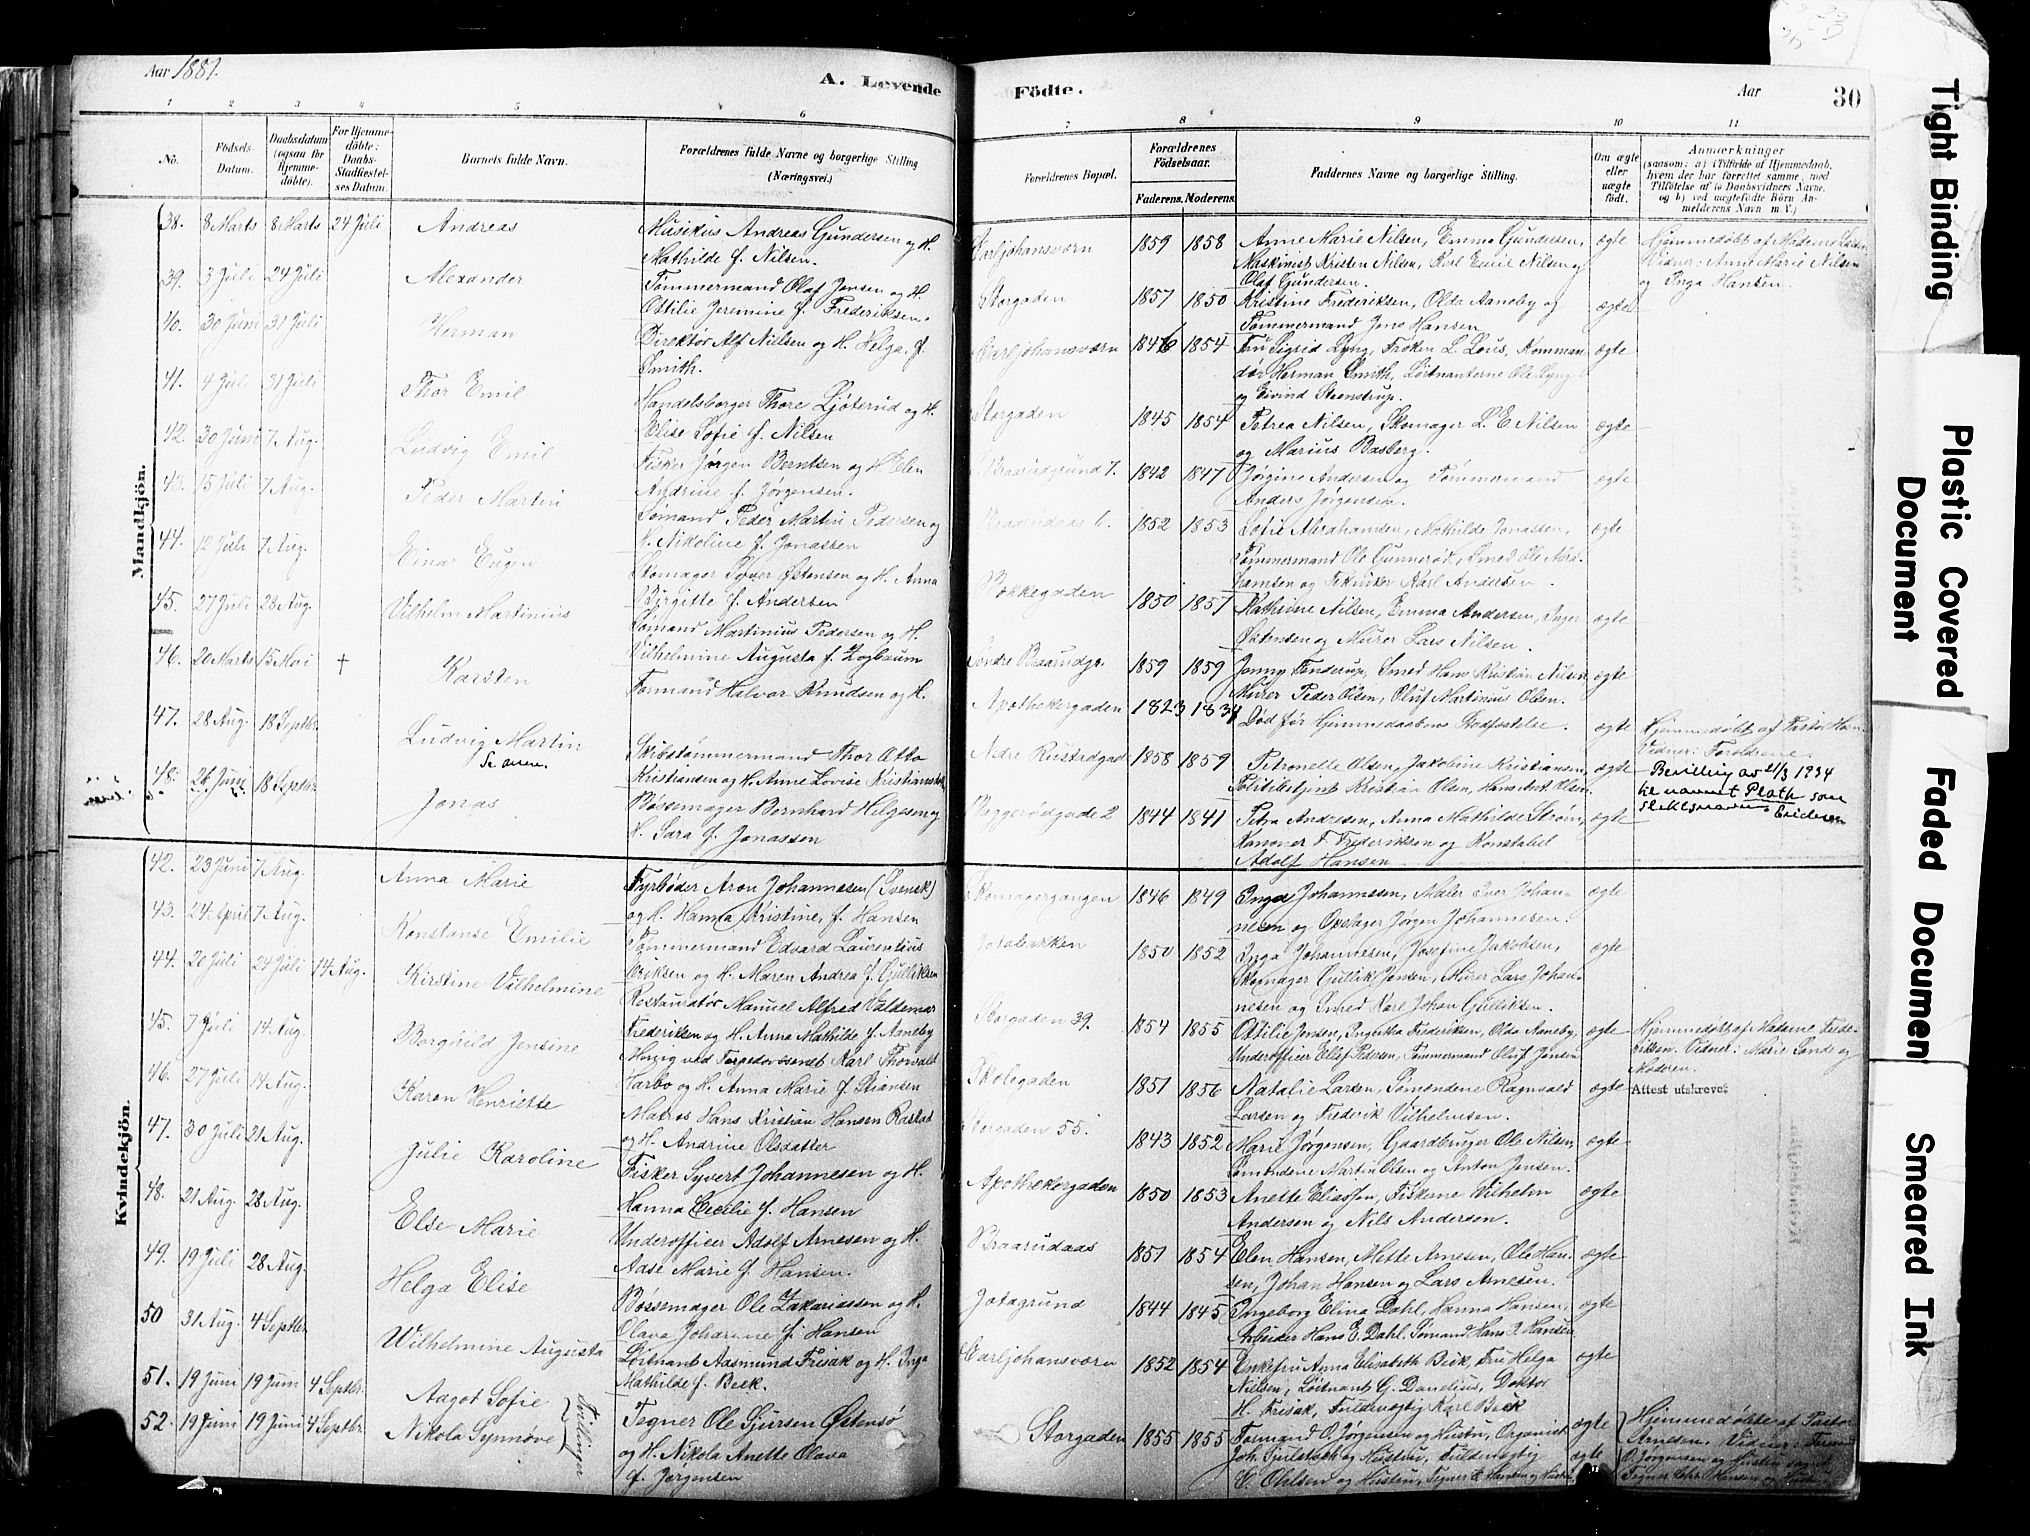 Aar 1881.
A. Levende
1 2 3 4 5 6
No.
Fødsels-
Datum.
Daabsdatum
(ogsaa for
Hjemme-
døbte).
For Hjemme-
døbte:
Daabs-
Stadfæstel-
ses Datum.
Barnets fulde Navn.
Forældrenes fulde Navne og borgerlige Stilling
(Næringsvei.)
Mandkjön.
38. 8 Marts 8 Marts 24 Juli Andreas
Musikus Andreas Gundersen og H.
Mathilde f. Nilsen.
39. 3 Juli 24 Juli Alexander
Tømmermand Olaf Jensen og H.
Ottilie Jeremine f. Frederiksen.
40. 30 Juni 31 Juli Herman
Direktør Alf Nielsen og H. Helga, f.
Smith.
41. 4 Juli 31 Juli Thor Emil
Handelsborger Thore Ljøterud og H.
Elise Sofie f. Nilsen
42 30 Juni 7 Aug. Ludvig Emil
Fisker Jørgen Berntsen og H. Elen
Andrine f. Jørgensen.
43. 15 Juli 7 Aug. Peder Martin
Sømand Peder Martin Pedersen og
H. Nikoline f. Jonassen
44. 12 Juli 7 Aug. Einar Eugen
Skomager Syver Østensen og H. Anna
Birgitte f. Andersen
45. 27 Juli 28 Aug. Vilhelm Martinius
Sømand Martinius Pedersen og H.
Vilhelmine Augusta f. Zogbaum
46. 20 Marts 15 Mai † Karsten
Formand Halvor Knudsen og H.
47. 28 Aug. 18 Septbr. Ludvig Martin
Skibstømmermand Thor Otto
Kristiansen og H. Anne Lovise Kristiansdtr
48. 26 Juni 18 Septbr Jonas
Bøssemager Bernhard Helgesen og
H. Sara f. Jonassen
Kvindekjön.
42. 23 Juni 7 Aug. Anna Marie
Fyrbøder Aron Johannesen (Svensk)
og H. Hanna Kristine, f. Hansen
43. 24 April 7 Aug. Konstanse Emilie
Tømmermand Edvard Laurentius
Eriksen og H. Maren Andrea f. Gulliksen
44. 20 Juli 24 Juli 14 Aug. Kirstine Vilhelmine
Restauratør Manuel Alfred Valdemar
Frederiksen og H. Anna Mathilde f. Aaneby
45. 7 Juli 14 Aug. Borghild Jensine
Karl Thorvald
Harbo og H. Anna Marie f. Stiansen
46. 27 Juli 14 Aug. Karen Henriette
Matros Hans Kristian Hansen Rastad
og H. Andrine Olsdatter
47. 30 Juli 21 Aug. Julie Karoline
Fisker Syvert Johannesen og H.
Hanna Cecilie f. Hansen
48. 21 Aug. 28 Aug. Else Marie
Underofficer Adolf Arnesen og H.
Aase Marie f. Hansen.
49. 19 Juli 28 Aug. Helga Elise
Bøssemager Ole Zakariassen og H.
Olava Johanne f. Hansen
50 31 Aug. 4 Septbr. Wilhelmine Augusta
Løitnant Aasmund Frisak og H. Inga
Mathilde f. Beck.
51. 19 Juni 19 Juni 4 Septbr. Aagot Sofie
52. 19 Juni 19 Juni 4 Septbr Nikola Synnøve
Tvillinger
Tegner Ole Sjursen Østensø
og H. Nikola Anette Olava
f. Jørgensen
Födte.
Aar
30
7 8 9 10 11
Forældrenes Bopæl.
Forældrenes
Födselsaar.
Faderens. Moderens.
Faddernes Navne og borgerlige Stilling.
Om ægte
eller
uægte
födt.
Anmærkninger
(saasom: a) i Tilfælde af Hjemmedaab,
hvem der har forrettet samme, med
Tilföielse af to Daabsvidners Navne,
og b) ved uægtefödte Börn An-
melderens Navn m. V.)
Carljohansværn 1859 1858
Anne Marie Nilsen, Emma Gundersen,
Maskinist Kristen Nilsen, Karl Emil Nilsen og
Olaf Gundersen.
ægte
Hjemmedøbt af Madame
Vidner: Anne Marie Nilsen
og Inga Hansen.
Storgaden 1857 1850
Kristine Frederiksen, Olda Aaneby og
Tømmermand Jens Hansen
ægte
Carljohansværn 1846 1854
Fru Sigrid Lyng, Frøken L. Lous, Komman-
dør Herman Smith, Løitnanterne Ole Lyng
og Eivind Steenstrup.
ægte
Storgaden 1845 1854
Petrea Nilsen, Skomager L. E. Nilsen
og Marius Basberg.
ægte
Braarudgrund 7. 1842 1847
Jørgine Andersen og Tømmermand
Anders Jørgensen.
ægte
Braarudaas 6. 1852 1853
Sofie Abrahamsen, Mathilde Jonassen,
Tømmermand Ole Gunnerød, Smed Ole Abra-
hamsen og Tekniker Karl Andersen.
ægte
Bakkegaden 1850 1857
Kathrine Nilsen, Emma Andersen, Inger
Østensen og Murer Lars Nilsen.
ægte
Søndre Braarudgr. 1859 1859
Jenny Fenderup, Smed Hans Kristian Nilsen
Murer Peder Olsen, Oluf Martinius Olsen.
ægte
Apothekergaden 1823 1834
Død før Hjemmedaabens Stadfæstelse.
ægte
Hjemmedøbt af Pastor
Vidner: Forældrene.
Nedre Rustadgad 1858 1859
Petronelle Olsen, Jakobine Kristiansen,
Politibetjent Kristian Olsen, Hans Ant. Olsen.
ægte
Bevilling av 21/3 1934
til navnet Plath som
slektsnavn
Baggerødgade 2 1844 1841
Petra Andresen, Anna Mathilde Strøm,
Kanoner F. Frederiksen og Konstabel
Adolf Hansen
ægte
Skomagergangen 1846 1849
Inga Johannesen, Maler Iver Johan-
nesen og Opslager Jørgen Johannesen.
ægte
Jotabakken 1850 1852
Inga Johannesen, Josefine Jakobsen,
Skomager Gullik Jensen, Murer Lars Johan-
nesen og Smed Karl Johan Gulliksen.
ægte
Storgaden 39. 1854 1855
Ottilie Jensen, Ingertha Frederiksen, Olda Aaneby,
Underofficer Ellef Pedersen, Tømmermand Oluf Jensen
ægte
Hjemmedøbt af Madame Frede-
riksen. Vidner: Marie Sande og
Moderen.
Skolegaden 1851 1856
Natalie Larsen, Sømændene Ragnvald
Larsen og Frederik Vilhelmsen.
ægte
Attest utskrevet
Storgaden 55. 1843 1852
Marie Jørgensen, Gaardbruger Ole Nilsen,
Sømændene Martin Olsen og Anton Jensen.
ægte
Apothekergaden 1850 1853
Anette Eliassen, Fiskerne Vilhelm
Andersen og Nils Andersen.
ægte
Braarudaas 1851 1854
Elen Hansen, Mette Arnesen, Ole Han-
sen, Johan Hansen og Lars Arnesen.
ægte
Jotagrund 1844 1845
Ingeborg Elina Dahl, Hanna Hansen,
Arbeider Hans E. Dahl, Sømand Hans J. Hansen
ægte
Carljohansværn 1852 1854
Enkefru Anna Elisabeth Beck, Fru Helga
Nielsen, Løitnant G. Danelius, Doktor
H. Frisak, Fuldmægtig Karl Beck
ægte
Storgaden 1855 1855
Formand O. Jørgensen og Hustru, Organist
Joh. og Hustru, Fuldmægtig
C. Ohlsen og Hustru, Tegner C. Hansen og Hustru
ægte
ægte
Hjemmedøbte af Pastor
Arnesen. Vidner: Formand
O. Jørgensen og Hustru samt
Tegner Chr. Hansen og Hustru
Tight Binding
Plastic Covered
Document
Faded Documen
Smeared Ink